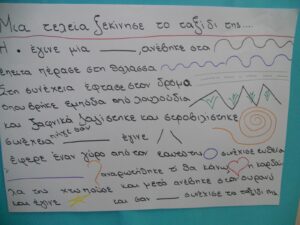 Μια τελεία ξεκίνησε το ταξίδι της....
Η • έγινε μια ____, ανέβηκε στα
έπειτα πέρασε στη θάλασσα
Στη συνέχεια έφτασε στον δρόμο
όπου βρήκε εμπόδια από λουλούδια
και ξαφνικά ζαλίστηκε και στροβιλίστηκε
συνέχεια έγινε
έφερε έναν γύρο από τον εαυτό της συνέχισε ευθεία
αναρωτήθηκε τι θα κάνω η καρδιά
της χτυπούσε και μετά ανέβηκε στον ουρανό
και έγινε και σαν ____ συνέχισε το ταξίδι της